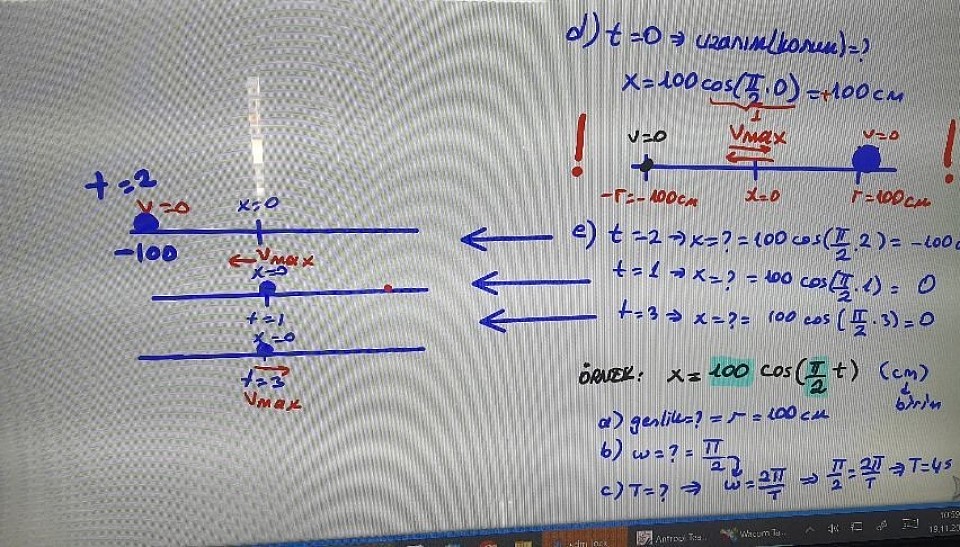 d) t=0 ⇒ uzanım(konum)=?
x=100 cos(π/2 . 0) = +100 cm
1
! v=0 Vmax v=0 !
-r=-100cm x=0 r=100cm
t=2
v=0 x=0
-100
Vmax
e) t=2 → x=? = 100 cos(π/2 . 2) = -100
x=0
t=1 → x=? = 100 cos(π/2 . 1) = 0
t=1
t=3 ⇒ x=? = 100 cos(π/2 . 3) = 0
x=0
t=3
Vmax
ÖRNEK: x= 100 cos(π/2 t) (cm)
birim
a) genlik=? = r = 100 cm
b) ω=? = π/2
c) T=? ⇒ ω=2π/T ⇒ π/2=2π/T ⇒ T=4s
Antropi Tes...
Wacom Ta...
10:59
19.11.20